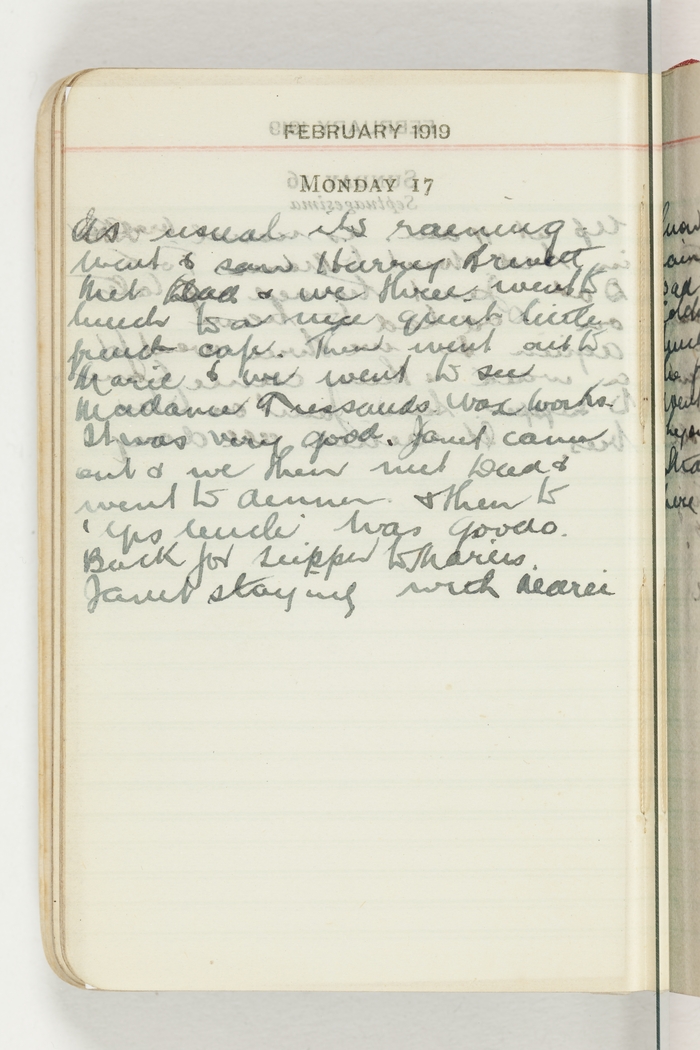 FEBRUARY 1919
MONDAY 17
As usual its raining
went & saw Harry
Met Dad & we three went to
lunch to a nice quiet little
french cafe. Then went out to
Marie & we went to see
Madame Tussauds Wax works.
It was very good. Janet came
out & we then met Dad &
went to dinner & then to
was goodo.
Back for supper to Maries.
Janet staying with Marie